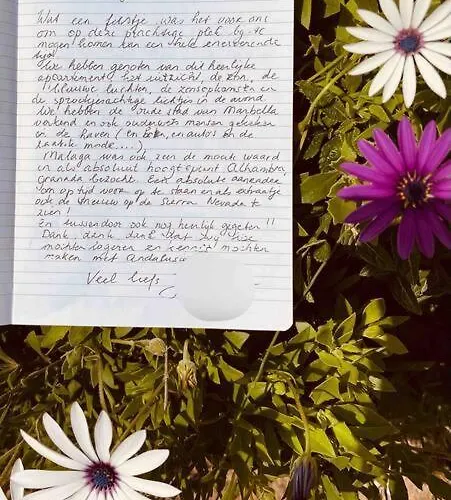 Wat een feestje was het voor ons
om op deze prachtige plek bij te
mogen komen van een veld enerverende
tijd!
We hebben genoten van dit heerlijke
appartement, het uitzicht, de zon, de
blauwe luchten, de zonsopkomsten en
de sprookjesachtige lichtjes in de avond
We hebben de oude stad van Marbella
verkend en ook ouderwets mensen gekeken
in de haven (en boten, en auto's en de
laatste mode....),
Malaga was ook zeer de moeite waard
en als absoluut hoogtepunt Alhambra,
Granada bezocht. Een absolute aanrader
om op tijd voor op te staan en als extraatje
ook de sneeuw op de Sierra Nevada te
zien!
En tussendoor ook nog heerlijk gegeten!!
Dank, dank, dank dat wij hier
mochten logeren en kennis mochten
maken met Andalusië
Veel liefs